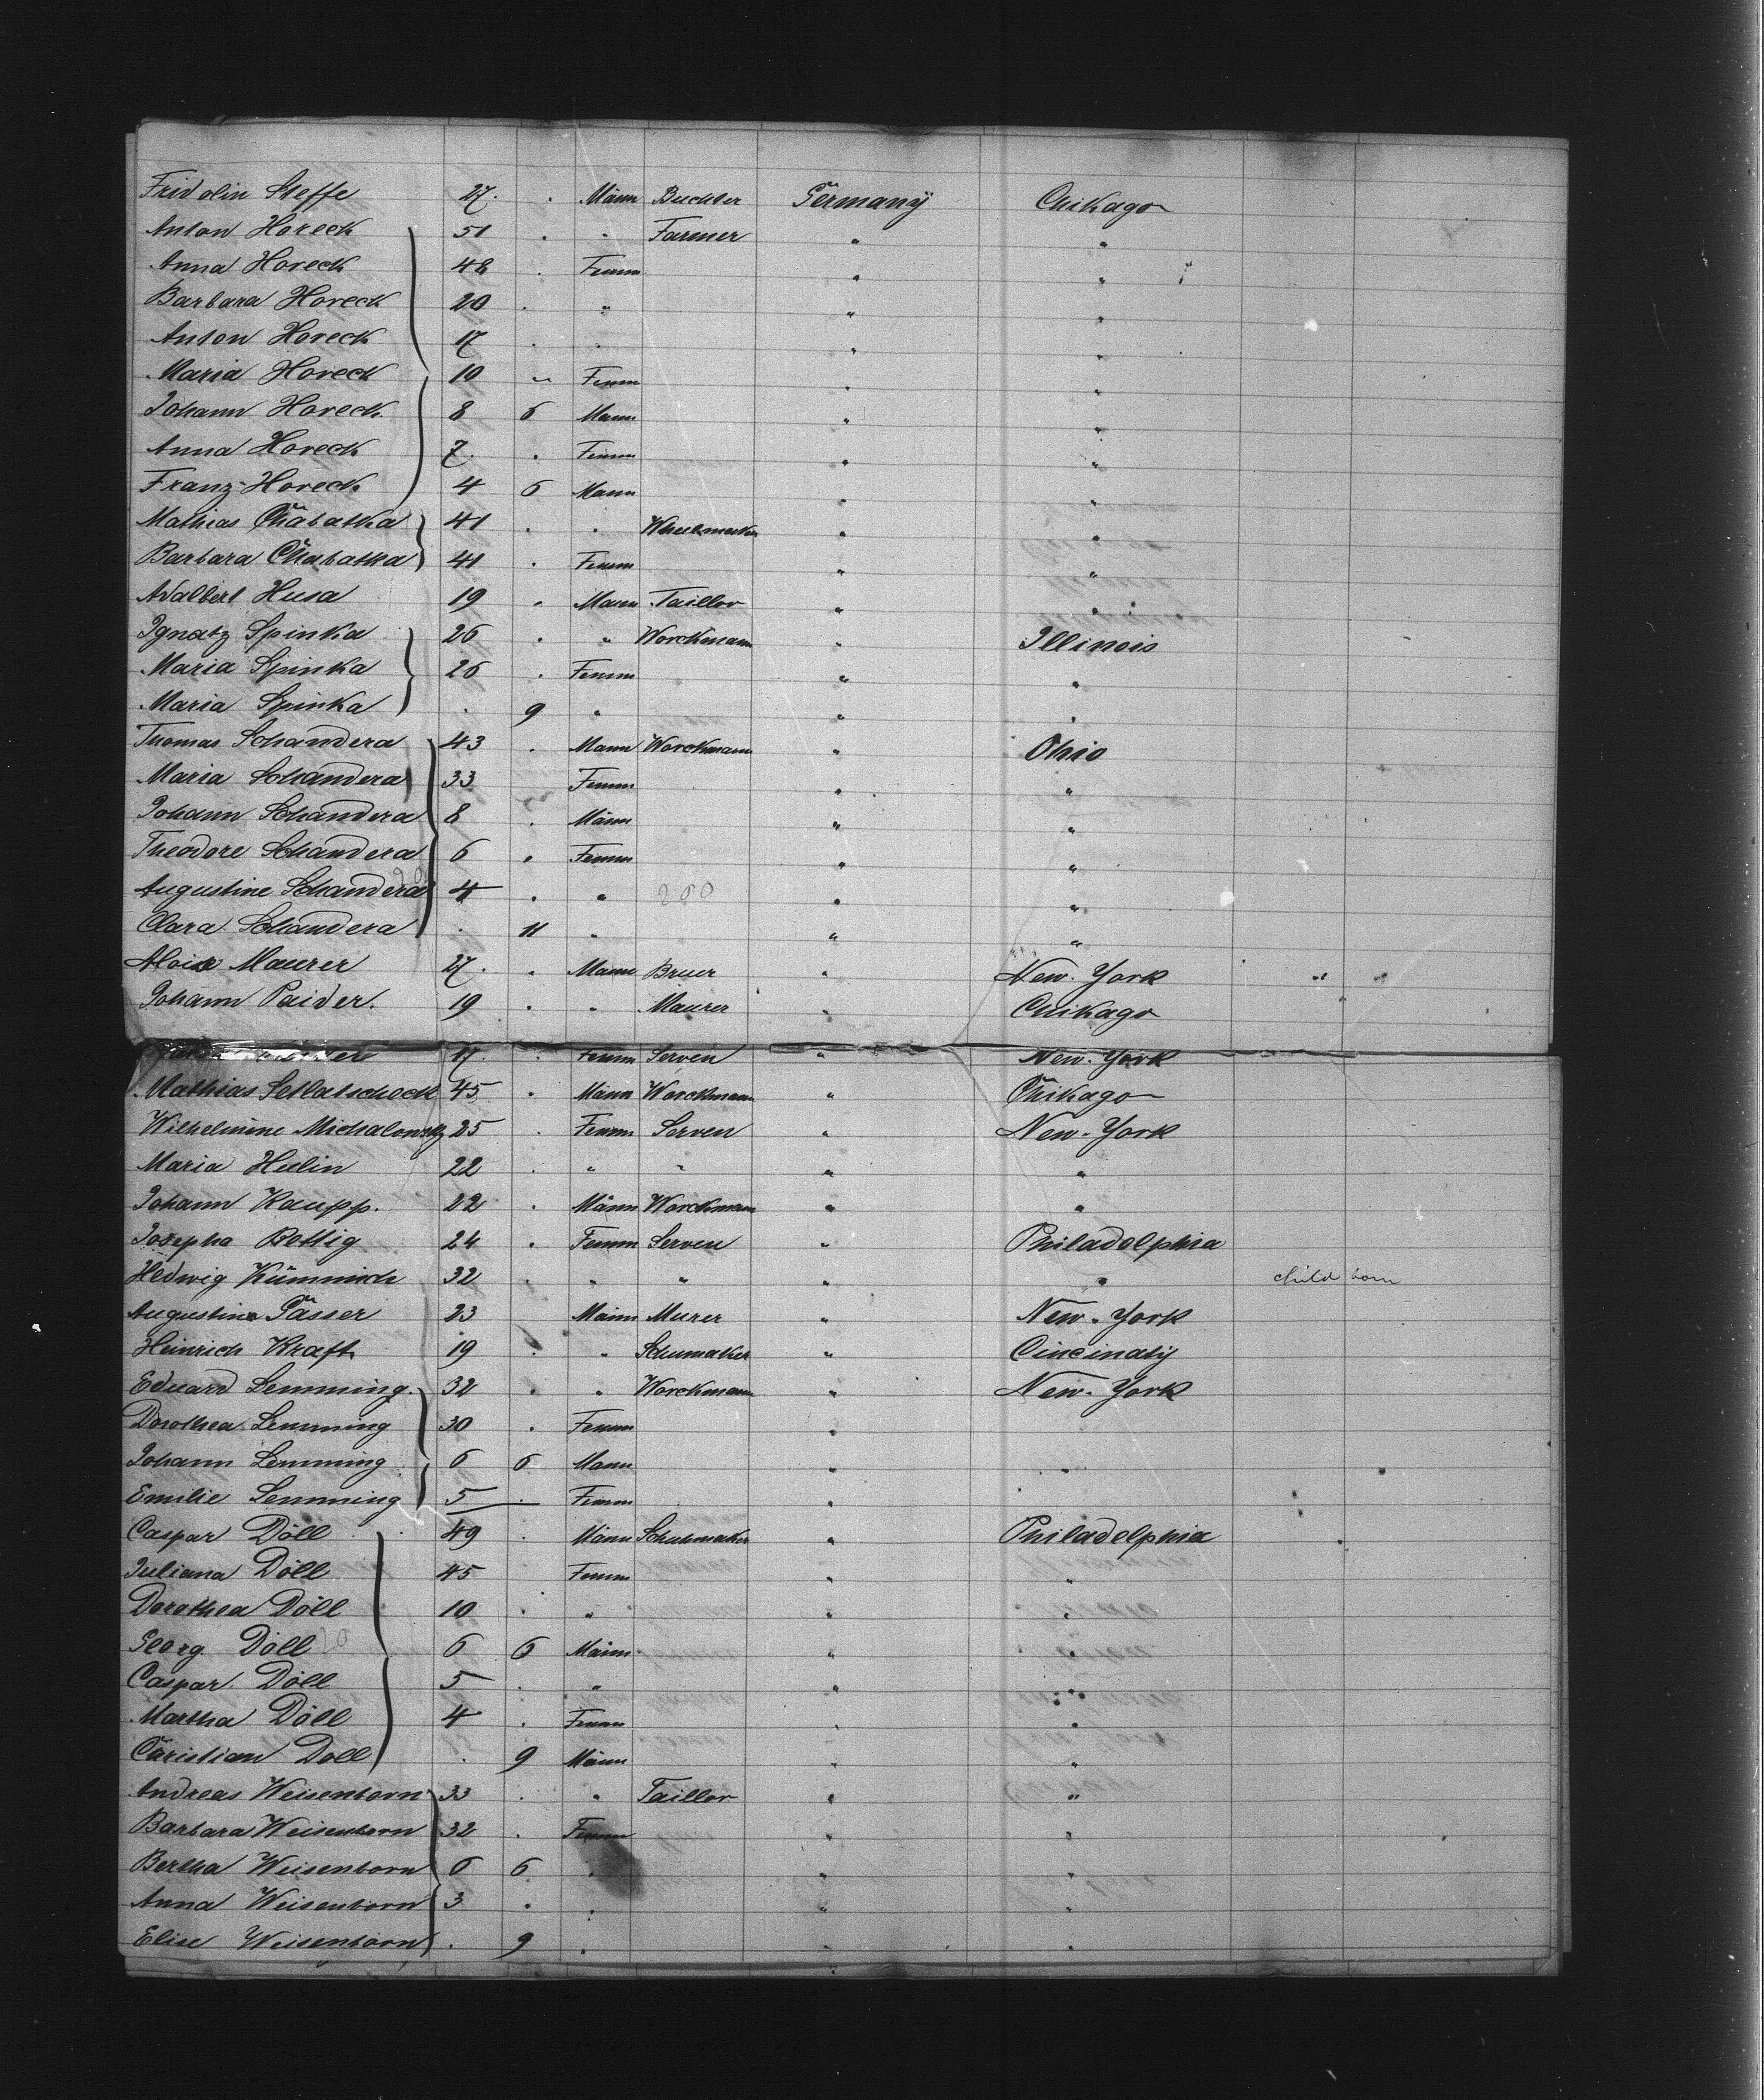 Fridolin Steffe 27. . Männ Buchter Germany Chikago
Anton Horeck 51 . " Farmer " "
Anna Horeck 48 . Femm " "
Barbara Horeck 20 . " " "
Anton Horeck 17 . . " "
Maria Horeck 10 " Femm " "
Johann Horeck. 8 6 Mann " "
Anna Horeck 7. . Femm " "
Franz Horeck 4 6 Mann " "
Mathias Chabatka 41 . . " "
Barbara Chabatka 41 . Femm " "
Adalbert Husa 19 . Mann Taillor " "
Ignatz Spinka 26 . " Worckmann " Illinois
Maria Spinka 26 . Femm " "
Maria Spinka . 9 " " "
Thomas Schandera 43 . Mann Worckmann " Ohio
Maria Schandera 33 Femm " "
Johann Schandera 8 . Männ " "
Theodore Schandera 6 . Femm " "
Augustine Schandera 4 . " 200 " "
Clara Schandera . 11 " " "
Alois Maurer 27. . Mann Bruer " New-York " "
Johann Paider. 19 . " Maurer " Chikago
17. . Femm Serven " New-York
Mathias Setlatscheck 45 . Männ Worckmann " Chikago
Wilhelmine Michalowsky 25 . Femm Serven " New-York
Maria Hulin 22 . " " " "
Johann Kaupp. 22 . Männ Worckmann " "
Josepha Rettig 24 . Femm Serven " Philadelphia
Hedwig Kümmich 32 . " " " " child born
Augustine Gasser 23 Männ Murer " New-York
Heinrich Kraft 19 . " Schumaker " Cincinaty
Eduard Lemming. 32 . " Worckmann " New-York
Dorothea Lemming 30 . Femm "
Johann Lemming 6 6 Mann " "
Emilie Lemming 5 . Femm " .
Caspar Döll 49 . Männ Schuhmaker " Philadelphia
Juliana Döll 45 Femm " "
Dorothea Döll 10 . " " "
Georg Döll 20 6 6 Männ " "
Caspar Döll 5 . " " "
Martha Döll 4 . Femm " "
Christian Doll . 9 Männ " "
Andreas Weisenborn 33 . " Taillor " "
Barbara Weisenborn 32 . Femm " "
Bertha Weisenborn 6 6 " " "
Anna Weisenborn 3 . " " "
Elise Weisenborn . 9 " " "